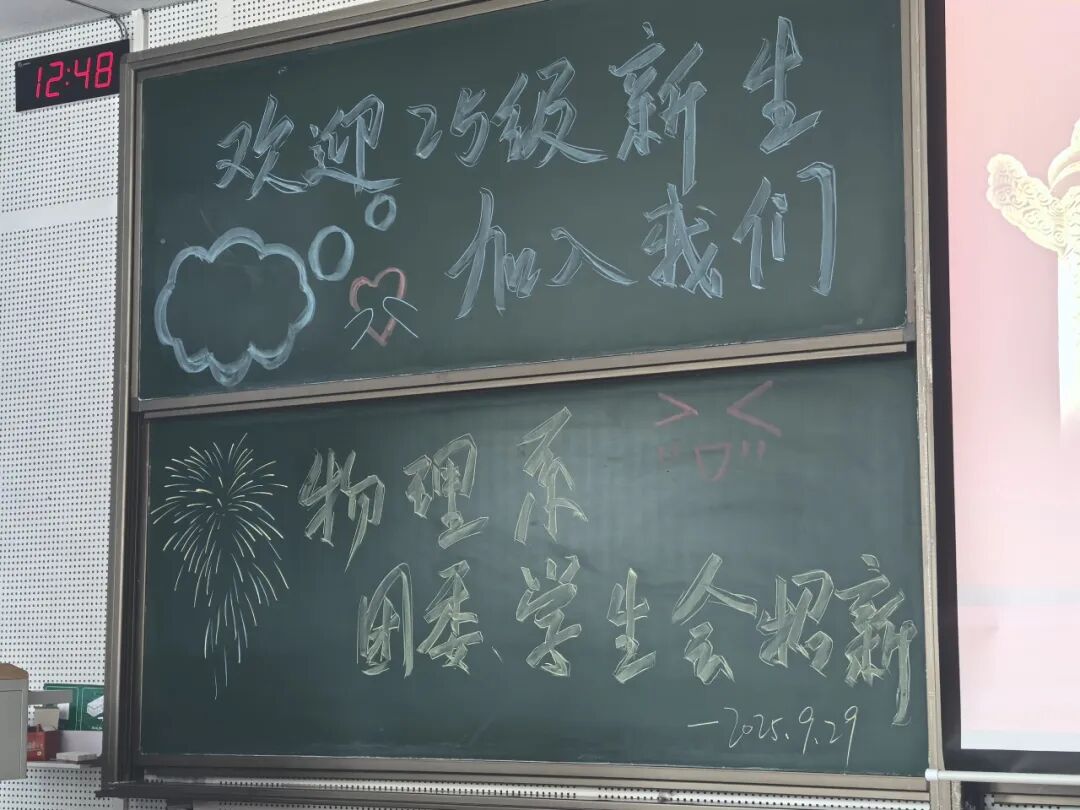 12:48
欢迎25级新生
加入我们
物理系
团委、学生会招新
—2025.9.29